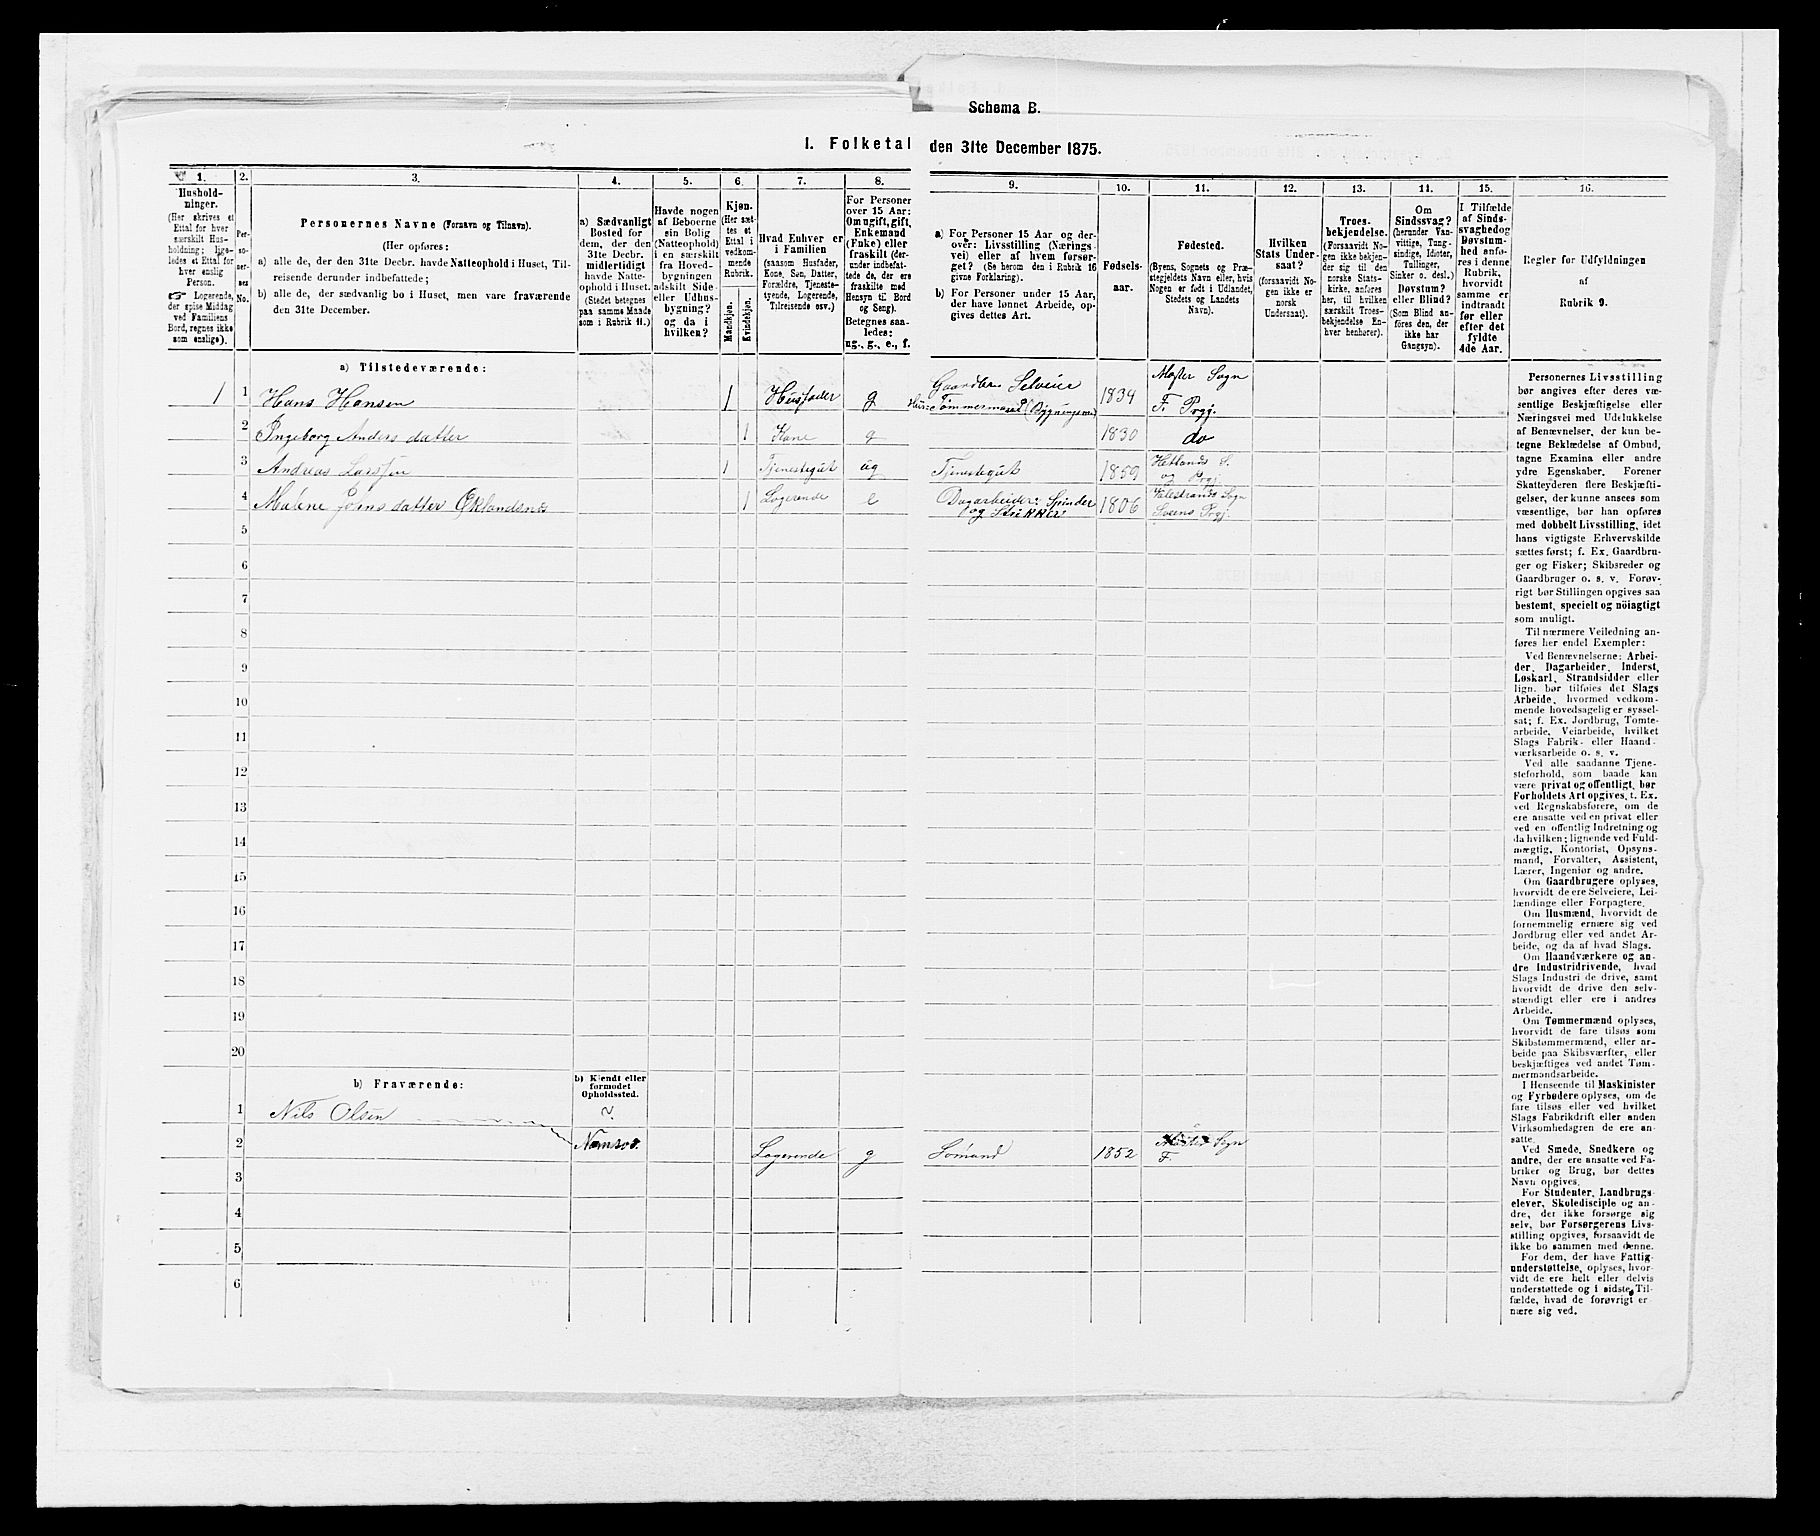 Schema B.
1. Folketal den 31te December 1875.
1. 2. 3. 4. 5. 6. 7. 8. 9. 10. 11. 12. 13. 14. 15. 16.
Hushold-
ninger.
(Her skrives et
Ettal for hver
særskilt Hus-
holdning; lige-
ledes et Ettal for
hver enslig
Person.
☞ Logerende,
der spise Middag
ved Familiens
Bord, regnes ikke
som enslige).
Per-
so-
ner-
nes
No.
Personernes Navne (Fornavn og Tilnavn).
(Her opføres:
a) alle de, der den 31te Decbr. havde Natteophold i Huset, Til-
reisende derunder indbefattede;
b) alle de, der sædvanlig bo i Huset, men vare fraværende
den 31te December.
a) Sædvanligt
Bosted for
dem, der den
31te Decbr.
midlertidigt
havde Natte-
ophold i Huset.
(Stedet betegnes
paa samme Maade
som i Rubrik 11.)
Havde nogen
af Beboerne
sin Bolig
(Natteophold)
i en særskilt
fra Hoved-
bygningen
adskilt Side-
eller Udhus-
bygning?
og da i
hvilken?
Kjøn.
(Her sæt-
tes et
Ettal i
vedkom-
mende
Rubrik.
Mandkjøn.
Kvindekjøn.
Hvad Enhver er
i Familien
(saasom Husfader,
Kone, Søn, Datter,
Forældre, Tjeneste-
tyende, Logerende,
Tilreisende osv.)
For Personer
over 15 Aar:
Om ugift, gift,
Enkemand
(Enke) eller
fraskilt (der-
under indbefat-
tede de, der ere
fraskilte med
Hensyn til Bord
og Seng).
Betegnes saa-
ledes:
ug., g., e., f.
a) For Personer 15 Aar og der-
over: Livsstilling (Nærings-
vei) eller af hvem forsør-
get? (Se herom den i Rubrik 16
givne Forklaring).
b) For Personer under 15 Aar,
der have lønnet Arbeide, op-
gives dettes Art.
Fødsels-
aar.
Fødested.
(Byens, Sognets og Præ-
stegjeldets Navn eller, hvis
Nogen er født i Udlandet,
Stedets og Landets
Navn).
Hvilken
Stats Under-
saat?
(forsaavidt No-
gen ikke er
norsk
Undersaat).
Troes-
bekjendelse.
(Forsaavidt No-
gen ikke bekjen-
der sig til den
norske Stats-
kirke, anføres
her, til hvilken
særskilt Troes-
bekjendelse En-
hver henhører).
Om
Sindssvag?
(herunder Van-
vittige, Tung-
sindige, Idioter,
Tullinger,
Sinker o. desl.)
Døvstum?
eller Blind?
(Som Blind an-
føres den, der
ikke har
Gangsyn).
I Tilfælde
af Sinds-
svaghed og
Døvstum-
hed anfø-
res i denne
Rubrik,
hvorvidt
samme er
indtraadt
før eller
efter det
fyldte
4de Aar.
Regler for Udfyldningen
af
Rubrik 9.
a) Tilstedeværende:
1 1 Hans Hansen 1 Husfader g Gaardbr. Selveier 1834 Moster Sogn
Tømmermand (Bygningsm.) F. Prgj.
2 Ingeborg Anders datter 1 Kone g 1830 do
3 Andreas Larssen 1 Tjenestegut ug Tjenestegut 1859 Hetlands S.
og Prgj.
4 Malene Joens datter Øklandsnes 1 Logerende e Dagarbeider: Spinder 1806 Valestrands Sogn
og Strikker Sveens Prgj.
5
6
7
8
9
10
11
12
13
14
15
16
17
18
19
20
b) Fraværende:
b) Kjendt eller
formodet
Opholdssted.
1 Nils Olsen
2 Namsos. Logerende g Sømand 1852 Moster Sogn
F.
3
4
5
6
Personernes Livsstilling
bør angives efter deres væ-
sentlige Beskjæftigelse eller
Næringsvei med Udelukkelse
af Benævnelser, der kun be-
tegne Beklædelse af Ombud,
tagne Examina eller andre
ydre Egenskaber. Forener
Skatteyderen flere Beskjæfti-
gelser, der kunne ansees som
væsentlige, bør han opføres
med dobbelt Livsstilling, idet
hans vigtigste Erhvervskilde
sættes først; f. Ex. Gaardbru-
ger og Fisker; Skibsreder og
Gaardbruger o. s. v. Forøv-
rigt bør Stillingen opgives saa
bestemt, specielt og nöiagtigt
som muligt.
Til nærmere Veiledning an-
føres her endel Exempler:
Ved Benævnelserne: Arbei-
der, Dagarbeider, Inderst,
Løskarl, Strandsidder eller
lign. bør tilføies det Slags
Arbeide, hvormed vedkom-
mende hovedsagelig er syssel-
sat; f. Ex. Jordbrug, Tomte-
arbeide, Veiarbeide, hvilket
Slags Fabrik- eller Haand-
værksarbeide o. s. v.
Ved alle saadanne Tjene-
steforhold, som baade kan
være privat og offentligt, bør
Forholdets Art opgives, f. Ex.
ved Regnskabsførere, om de
ere ansatte ved en privat eller
ved en offentlig Indretning og
da hvilken; lignende ved Fuld-
mægtig, Kontorist, Opsyns-
mand, Forvalter, Assistent,
Lærer, Ingeniør og andre.
Om Gaardbrugere oplyses,
hvorvidt de ere Selveiere, Lei-
lændinge eller Forpagtere.
Om Husmænd, hvorvidt de
fornemmelig ernære sig ved
Jordbrug eller ved andet Ar-
beide, og da af hvad Slags.
Om Haandværkere og an-
dre Industridrivende, hvad
Slags Industri de drive, samt
hvorvidt de drive den selv-
stændigt eller ere i andres
Arbeide.
Om Tømmermænd oplyses,
hvorvidt de fare tilsøs som
Skibstømmermænd, eller ar-
beide paa Skibsværfter, eller
beskjæftiges ved andet Tøm-
mermandsarbeide.
I Henseende til Maskinister
og Fyrbødere oplyses, om de
fare tilsøs eller ved hvilket
Slags Fabrikdrift eller anden
Virksomhedsgren de ere an-
satte.
Ved Smede, Snedkere og
andre, der ere ansatte ved Fa-
briker og Brug, bør dettes
Navn opgives.
For Studenter, Landbrugs-
elever, Skoledisciple og an-
dre, der ikke forsørge sig
selv, bør Forsørgerens Livs-
stilling opgives, forsaavidt de
ikke bo sammen med denne.
For dem, der have Fattig-
understøttelse, oplyses, hvor-
vidt de ere helt eller delvis
understøttede og i sidste Til-
fælde, hvad de forøvrigt er-
nære sig ved.